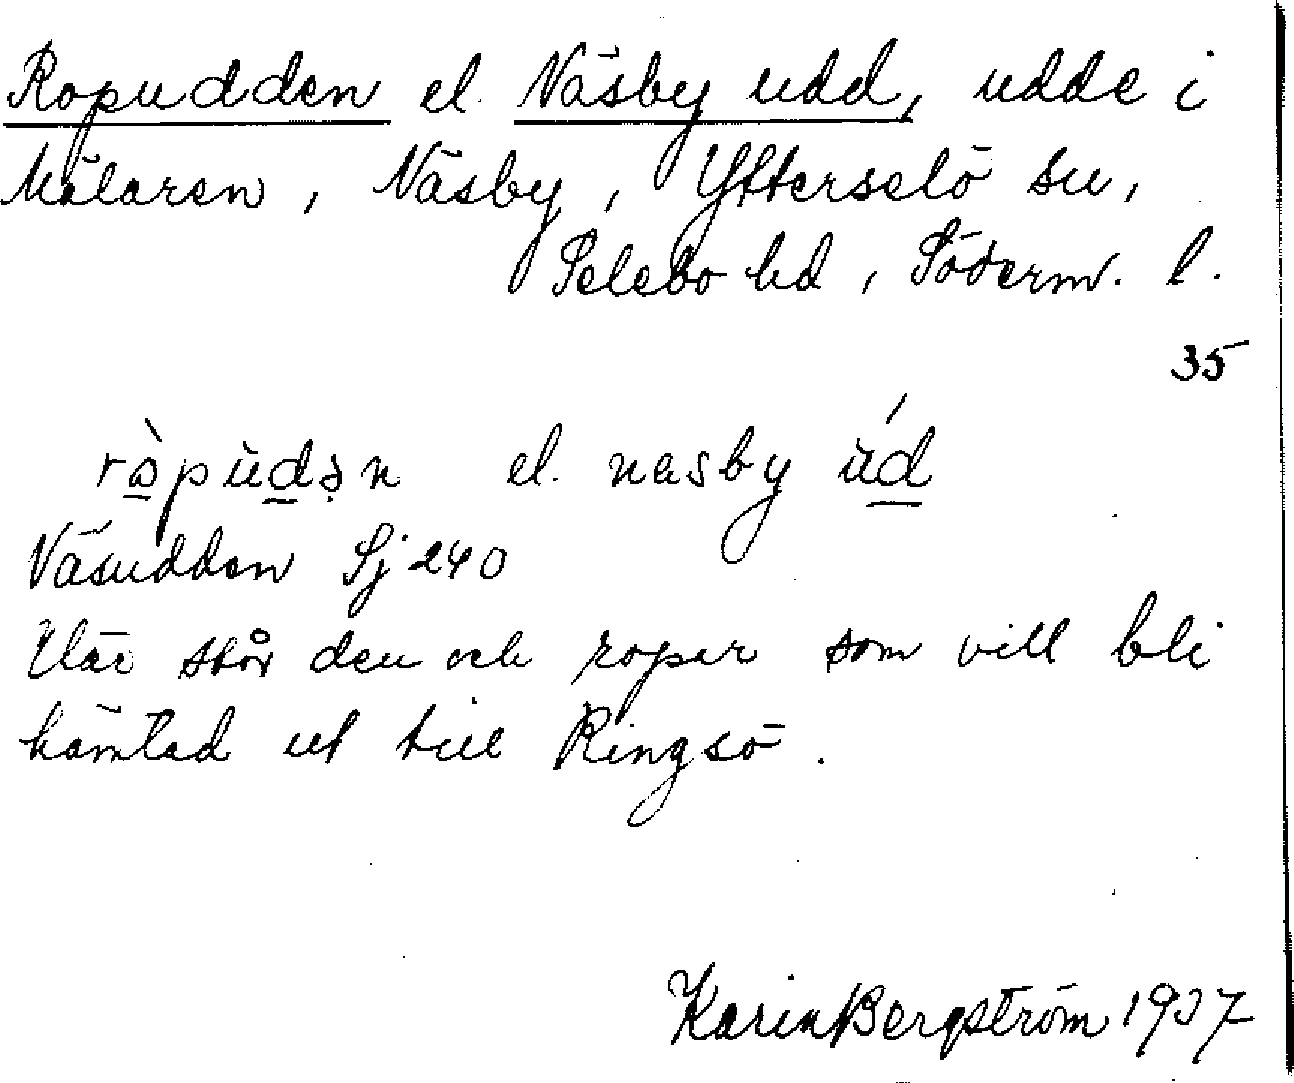 Ropudden el. Näsby udd, udde i
Mälaren, Näsby, Ytterselö sn,
Selebo hd, Söderm. l.
35
ròpùdən el. nasby úd
Näsudden Sj 240
Här står den och ropar som vill bli
hämtad ut till Ringsö.
Karin Bergström 1937